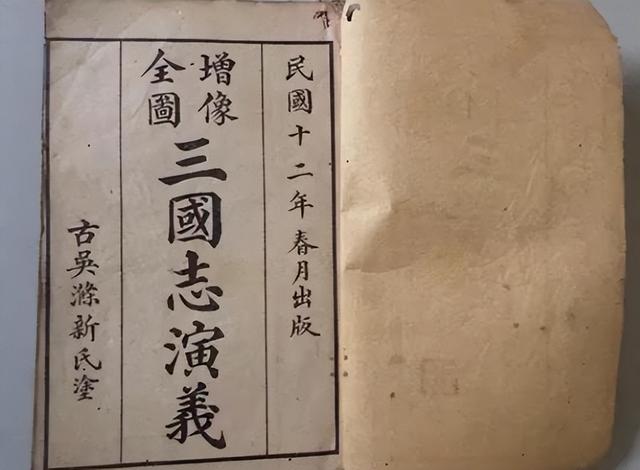 民國十二年春月出版
增像
全圖
三國志演義
古吳滌新氏塗